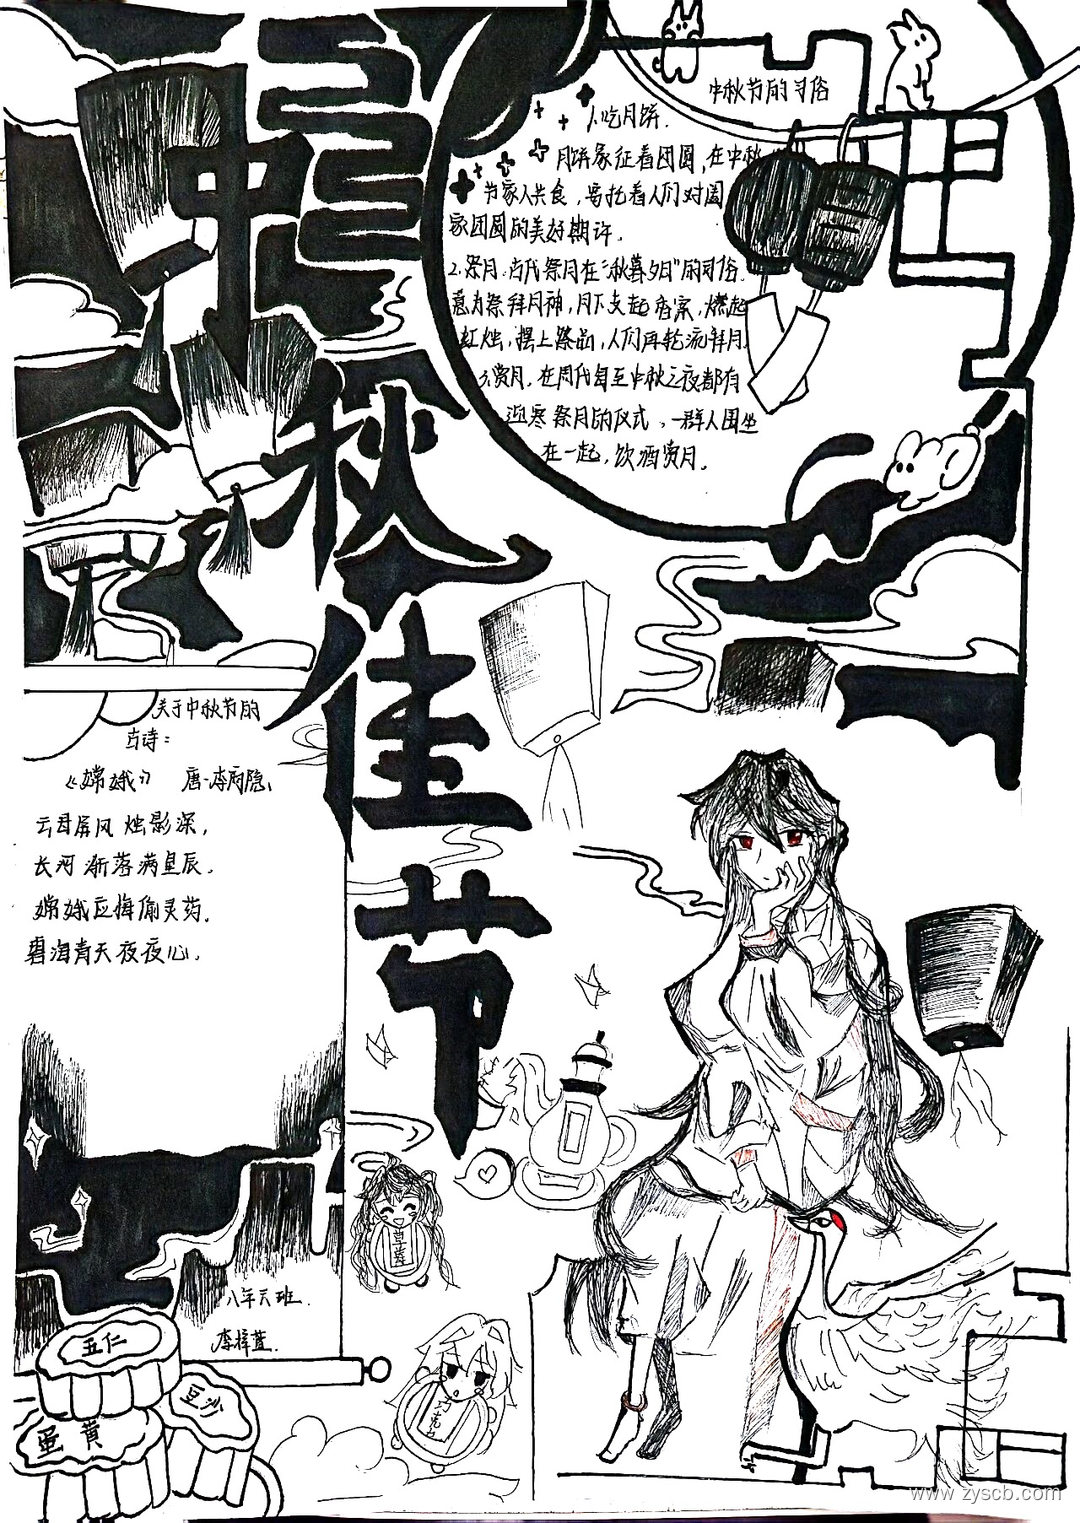 中秋佳节
中秋节的习俗
1.吃月饼.
月饼象征着团圆,在中秋
节家人共食,寄托着人们对国
家团圆的美好期许.
2.祭月.古代祭月在"秋暮夕日"的习俗.
意为祭拜月神,月下支起香案,燃起
红烛,摆上祭品,人们再轮流拜月.
3.赏月.在周代每至中秋之夜都有
迎寒祭月的仪式、一群人围坐
在一起,饮酒赏月.
关于中秋节的
古诗:
《嫦娥》 唐·李商隐
云母屏风烛影深,
长河渐落满星辰.
嫦娥应悔偷灵药.
碧海青天夜夜心.
八年六班.
李梓蓝.
五仁
豆沙
蛋黄
www.zyscb.com